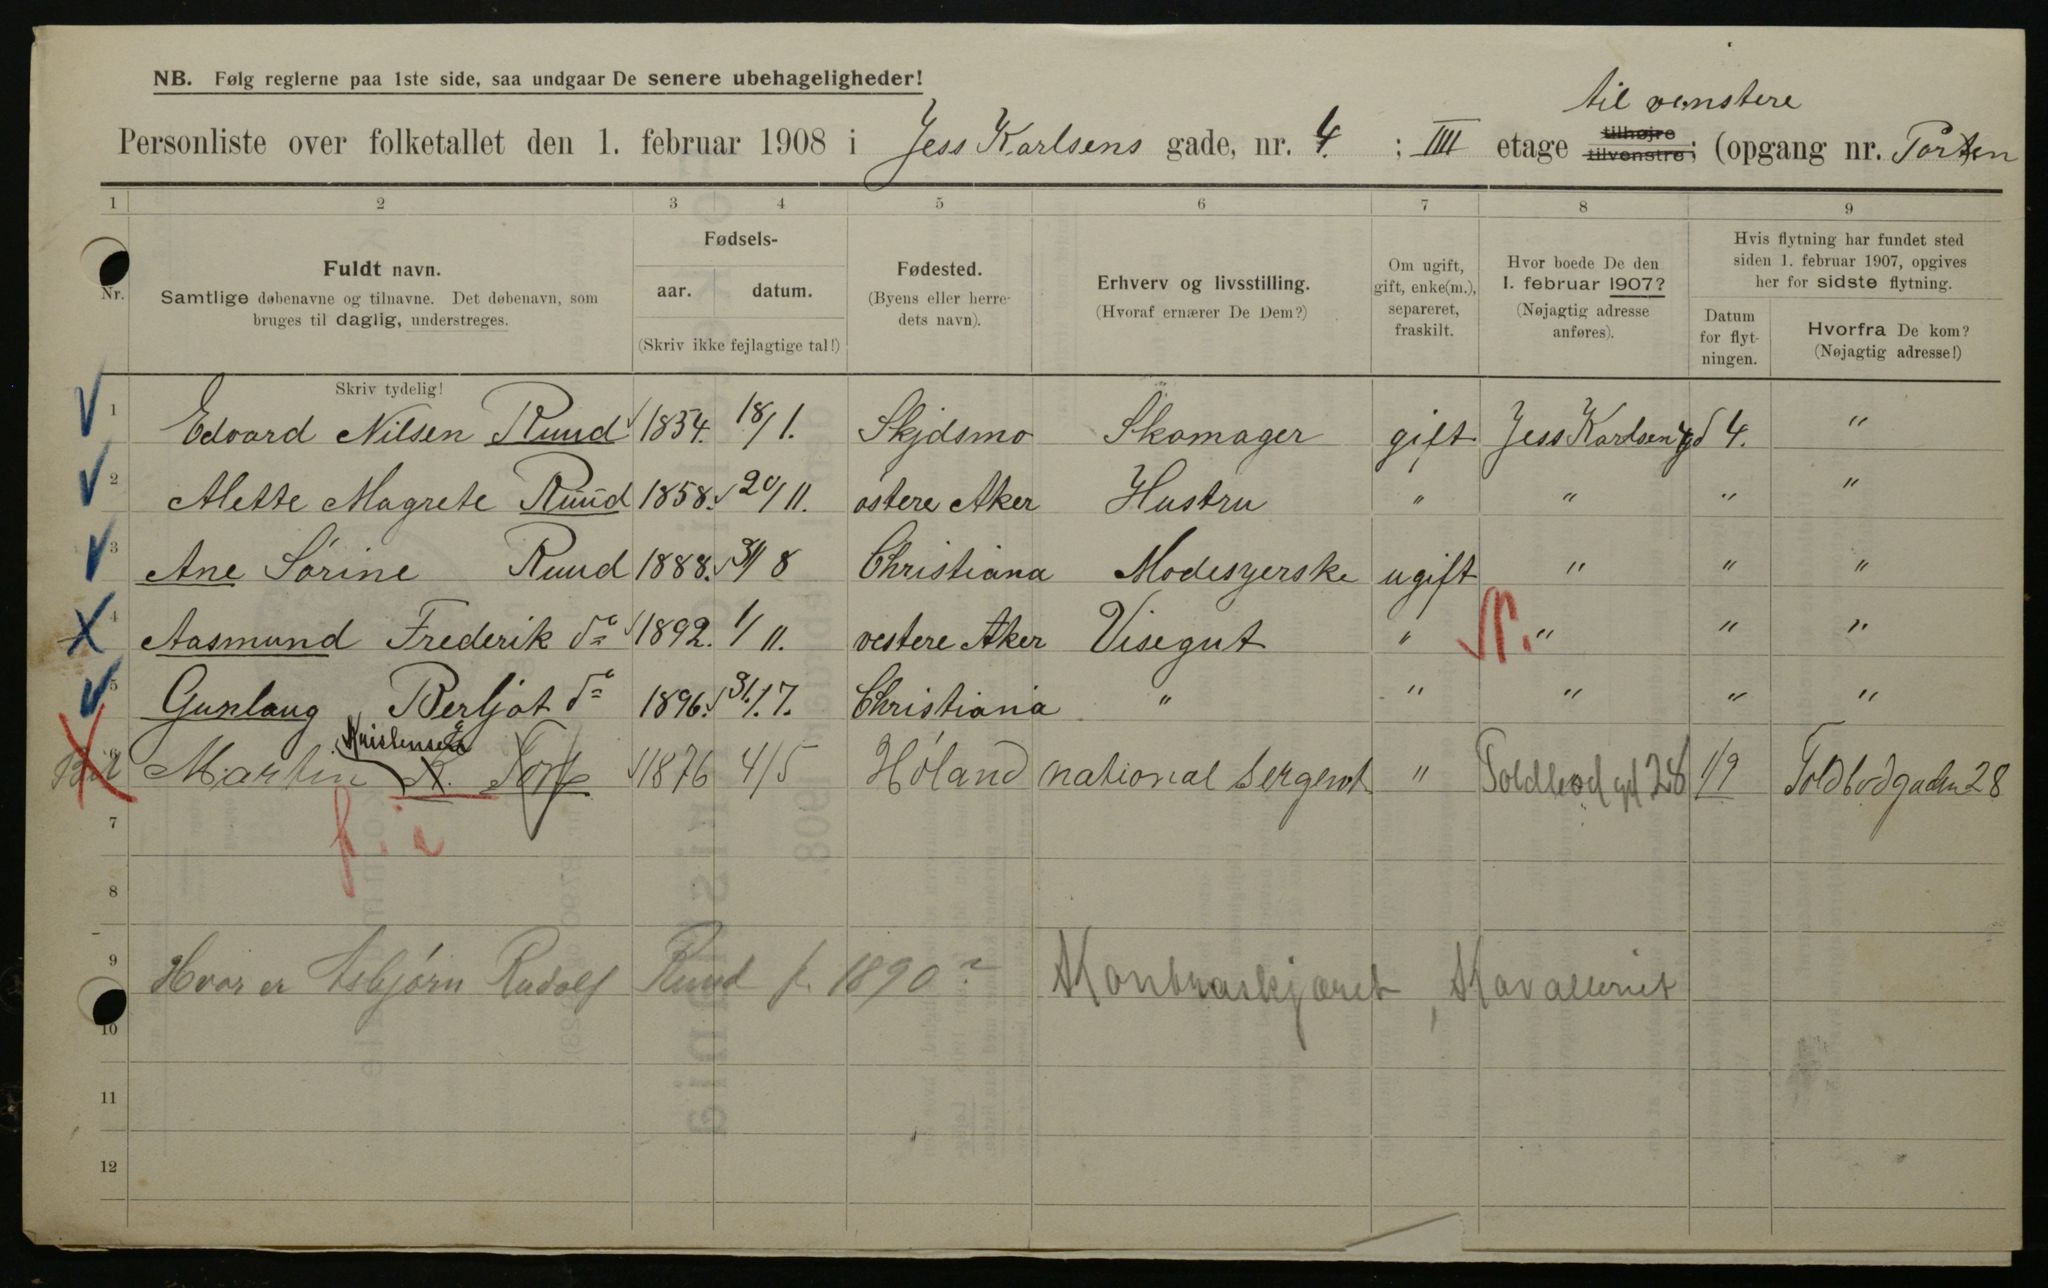 NB. Følg reglerne paa 1ste side, saa undgaar De senere ubehageligheder!
til venstere
Personliste over folketallet den 1. februar 1908 i Jess Karlsens gade, nr. 4. ; IIII etage tilhøjre tilvenstre; (opgang nr. Porten
1 2 3 4 5 6 7 8 9
Nr.
Fuldt navn.
Samtlige døbenavne og tilnavne. Det døbenavn, som
bruges til daglig, understreges.
Skriv tydelig!
Fødsels-
aar. datum.
(Skriv ikke fejlagtige tal!)
Fødested.
(Byens eller herre-
dets navn).
Erhverv og livsstilling.
(Hvoraf ernærer De Dem?)
Om ugift,
gift, enke(m.),
separeret,
fraskilt.
Hvor boede De den
1. februar 1907?
(Nøjagtig adresse
anføres).
Hvis flytning har fundet sted
siden 1. februar 1907, opgives
her for sidste flytning.
Datum
for flyt-
ningen.
Hvorfra De kom?
(Nøjagtig adresse!)
1 Edvard Nilsen Ruud 1854. 18/1. Skjdsmo Skomager gift Jess Karlsen gd 4. "
2 Mette Magrete Ruud 1858. 20/11. østere Aker Hustru " " " "
3 Ane Sørine Ruud 1888. 31/8 Christiana Modesyerske ugift " " "
4 Aasmund Frederik do 1892. 1/11. vestere Aker Visegut " " " "
5 Gunlaug Berljot do 1896. 31/7. Christiania " " " " "
Kristensen
6 Martin K. Torp 1876 4/5 Høland national Sergent " Toldbod gd 28 1/9 Toldbodgaden 28
7
8
9 Hvor er Asbjørn Rudolf Ruud f. 1890? Kontraskjæret, Kavalleriet
10
11
12